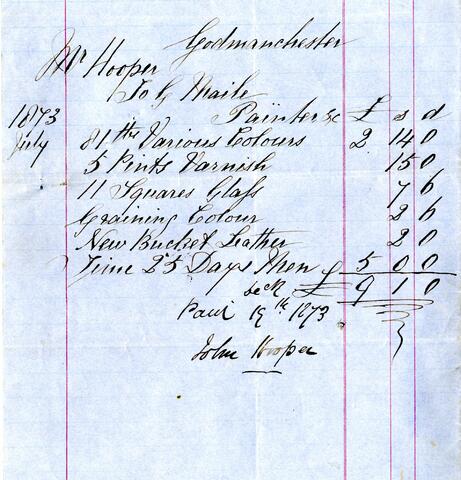 Godmanchester
Mr Hooper
To G Maile
1873 Painter &c £ s d
July 81 lbs Various Colours 2 14 0
5 Pints Varnish 15 0
11 Squares Glass 7 6
Graining Colour 2 6
New Bucket Leather 2 0
Time 25 Days Men £ 5 0 0
£ 9 1 0
Paid 19th 1873
John Hooper